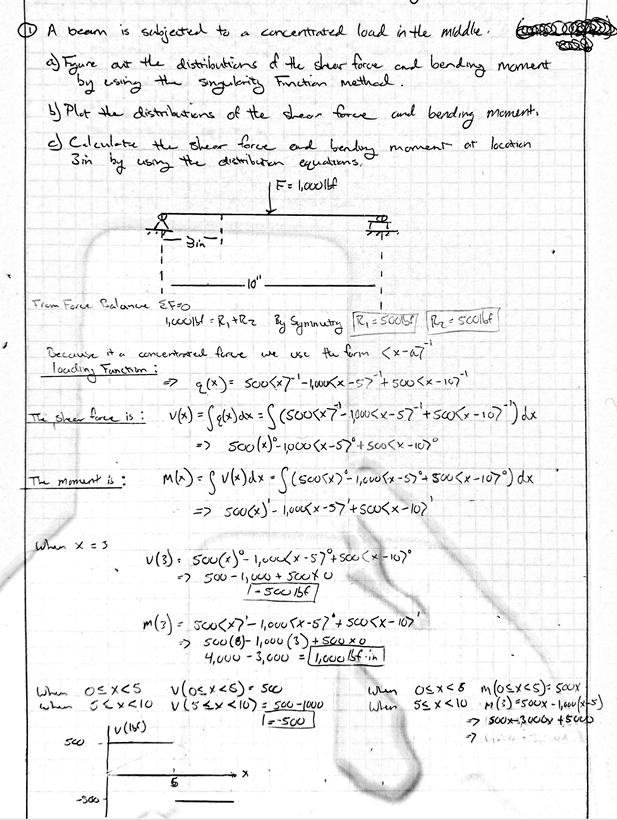 ① A beam is subjected to a concentrated load in the middle.
a) Figure out the distributions of the shear force and bending moment
by using the singularity Function method.
b) Plot the distributions of the shear force and bending moment.
c) Calculate the shear force and bending moment at location
3in by using the distribution equations.
F = 1,000 lbf
3in
10"
From Force Balance ΣF=0
1,000 lbf = R₁ + R₂ By Symmetry R₁ = 500 lbf R₂ = 500 lbf
Because it a concentrated force we use the form <x-a>⁻¹
loading Function:
⇒ q(x) = 500<x>⁻¹ - 1,000<x-5>⁻¹ + 500<x-10>⁻¹
The shear force is: V(x) = ∫q(x)dx = ∫(500<x>⁻¹ - 1,000<x-5>⁻¹ + 500<x-10>⁻¹) dx
⇒ 500<x>⁰ - 1,000<x-5>⁰ + 500<x-10>⁰
The moment is: M(x) = ∫V(x)dx = ∫(500<x>⁰ - 1,000<x-5>⁰ + 500<x-10>⁰) dx
⇒ 500<x>¹ - 1,000<x-5>¹ + 500<x-10>¹
When x = 3
V(3) = 500<x>⁰ - 1,000<x-5>⁰ + 500<x-10>⁰
⇒ 500 - 1,000 + 500×0
-500 lbf
M(3) = 500<x>¹ - 1,000<x-5>¹ + 500<x-10>¹
⇒ 500(8) - 1,000(3) + 500×0
4,000 - 3,000 = 1,000 lbf·in
When 0≤x<5 V(0≤x<5) = 500
When 5≤x<10 V(5≤x<10) = 500-1000
= -500
When 0≤x<5 M(0≤x<5) = 500x
When 5≤x<10 M(3) = 500x - 1,000(x-5)
⇒ 500x + 5000
⇒
V(lbf)
500
5
x
-500